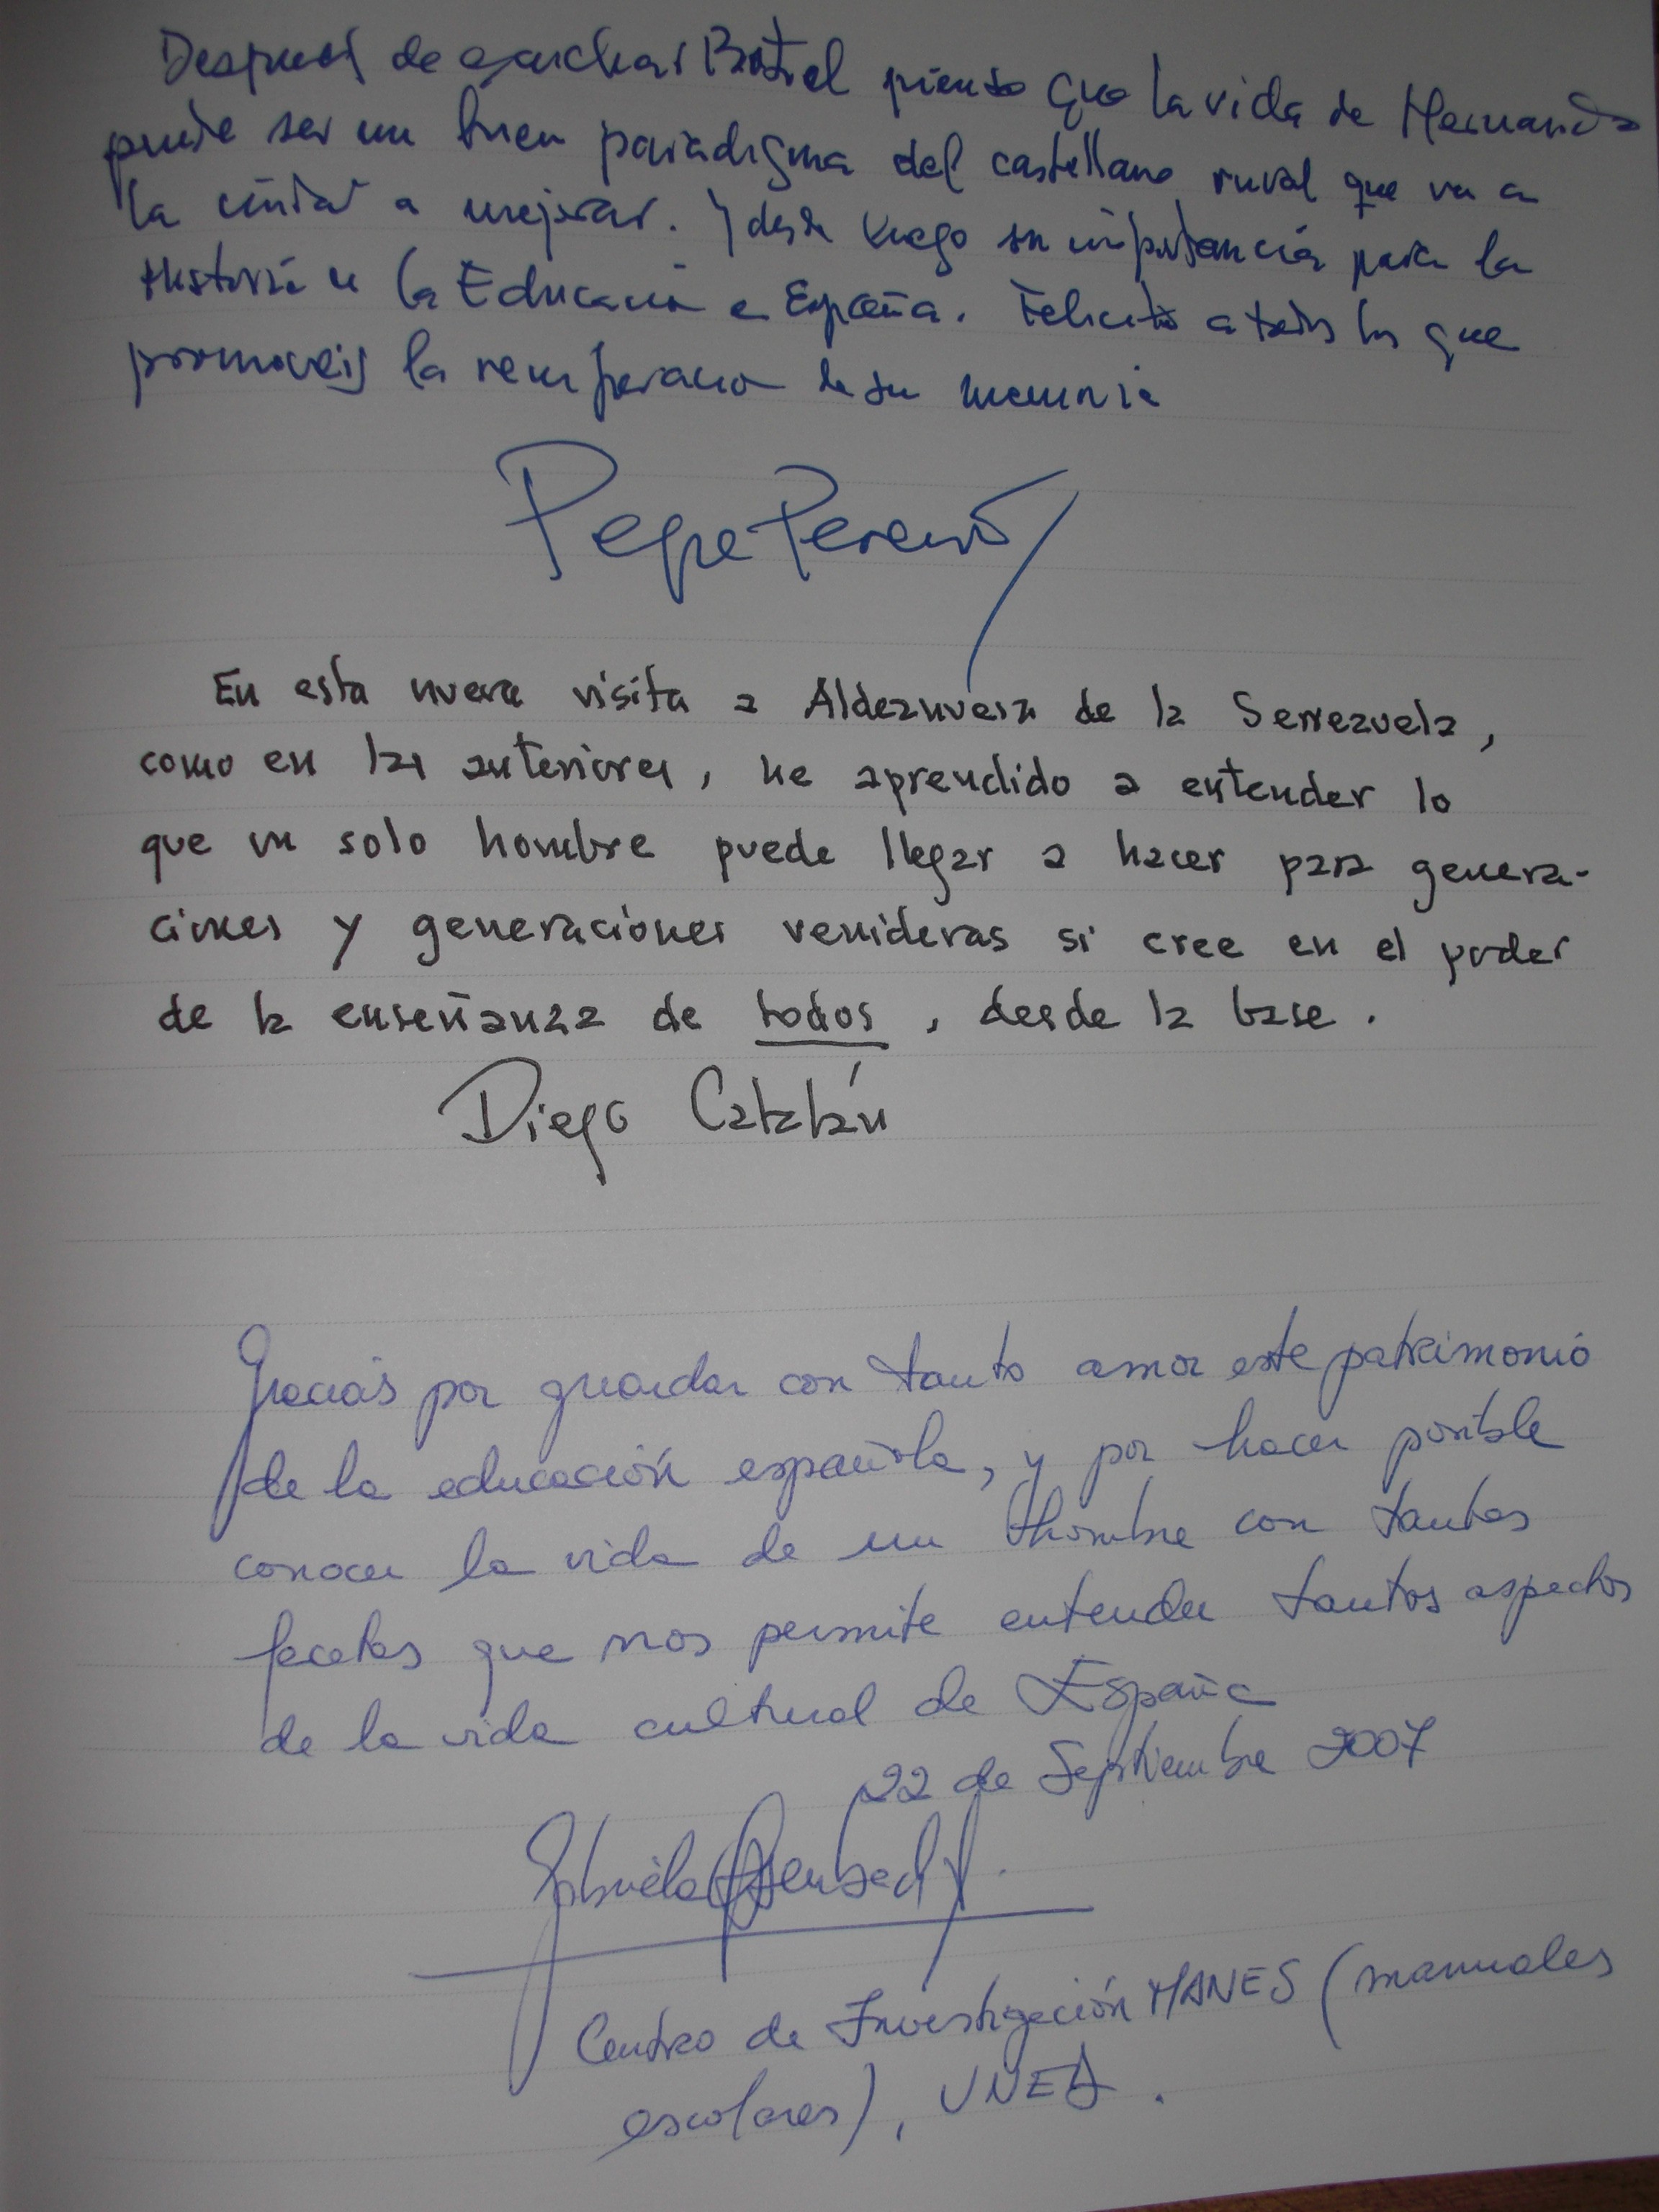 Después de escuchar Botrel pienso que la vida de Hernando
puede ser un buen paradigma del castellano rural que va a
la ciudad a mejorar. Y desde luego su importancia para la
Historia de la Educación en España. Felicito a todos los que
promoveis la recuperación de su memoria
Pepe Pereiró
En esta nueva visita a Aldeanueva de la Serrezuela,
como en las anteriores, he aprendido a entender lo
que un solo hombre puede llegar a hacer para genera-
ciones y generaciones venideras si cree en el poder
de la enseñanza de todos, desde la base.
Diego Catalán
Gracias por guardar con tanto amor este patrimonio
de la educación española, y por hacer posible
conocer la vida de un hombre con tantas
facetas que nos permite entender tantos aspectos
de la vida cultural de España
22 de Septiembre 2007
Gabriela Ossenbach
Centro de Investigación MANES (manuales
escolares), UNED.